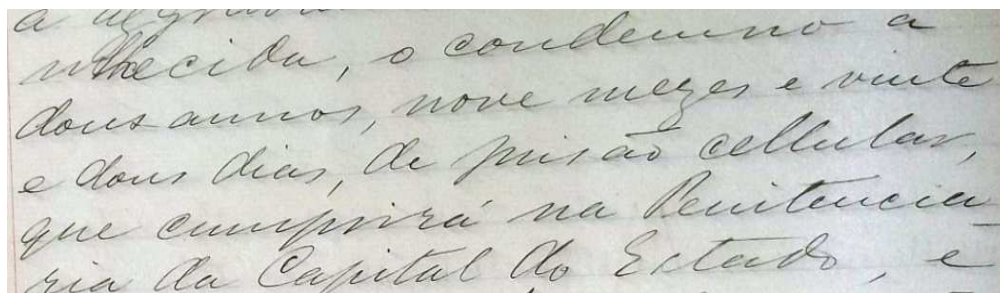 nhecida, o condemno a
dous annos, nove mezes e vinte
e dous dias, de prisão cellular,
que cumprirá na Penitencia
ria da Capital do Estado, e